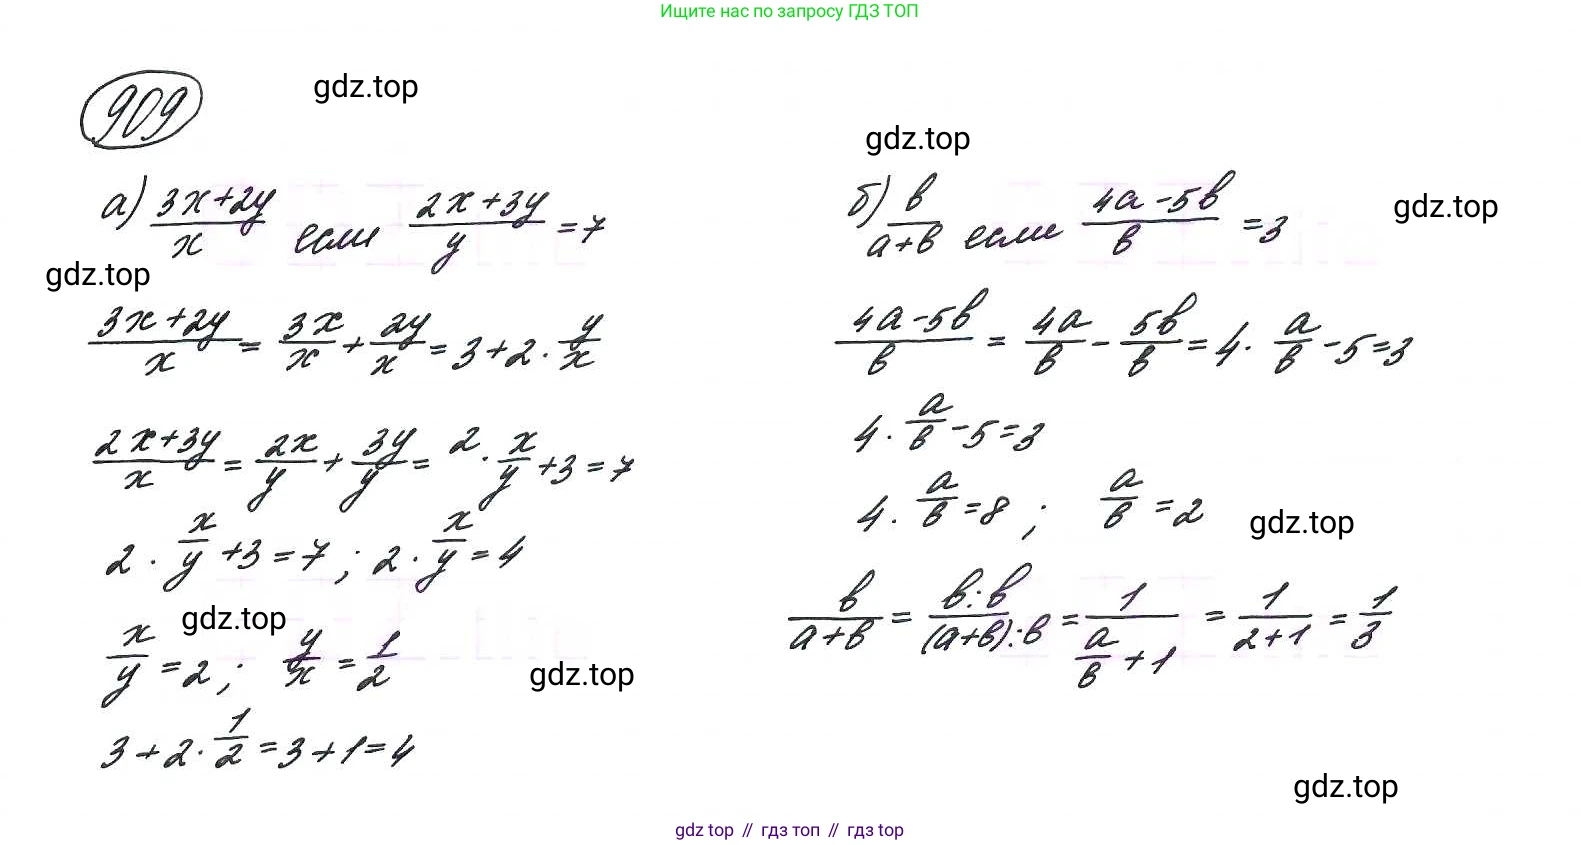 Ищите нас по запросу ГДЗ ТОП
909
gdz.top
gdz.top
а) (3x+2y)/x если (2x+3y)/y = 7
gdz.top
(3x+2y)/x = 3x/x + 2y/x = 3+2·y/x
(2x+3y)/x = 2x/y + 3y/y = 2·x/y +3=7
2·x/y +3=7; 2·x/y =4
gdz.top
x/y =2; y/x = 1/2
gdz.top
3+2·1/2 =3+1=4
б) в/(а+в) если (4а-5в)/в = 3
gdz.top
(4а-5в)/в = 4а/в - 5в/в = 4·а/в -5=3
4·а/в -5=3
4·а/в =8; а/в =2
gdz.top
в/(а+в) = в:в/(а+в):в = 1/(а/в +1) = 1/(2+1) = 1/3
gdz.top
gdz top // гдз топ // гдз top